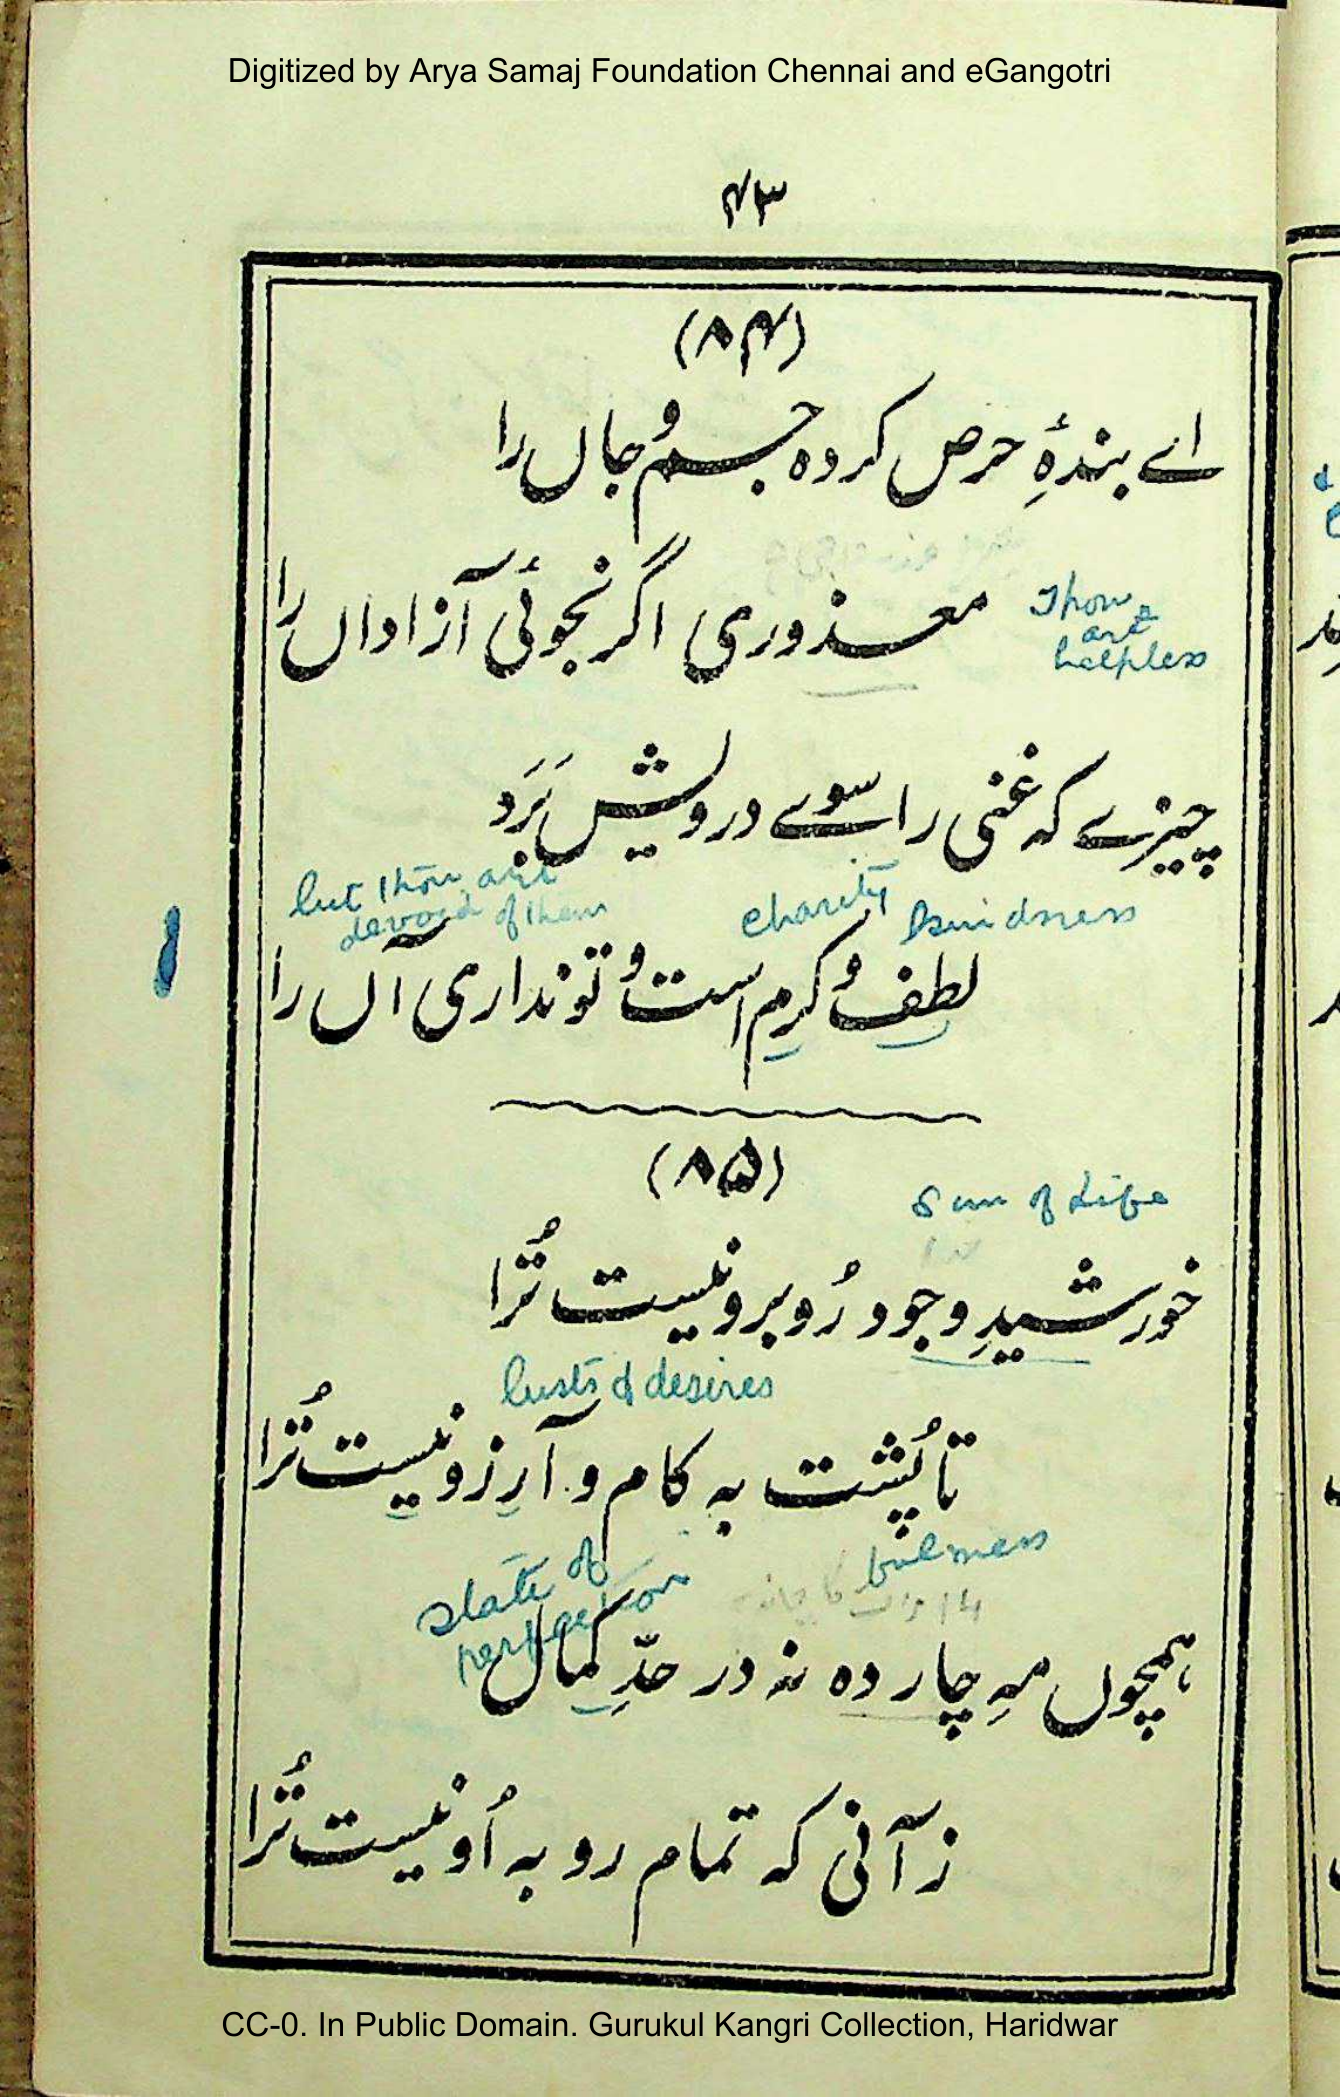 Digitized by Arya Samaj Foundation Chennai and eGangotri
۴۳
(۸۴)
اے بندۂِ حرص کردہ جسم وُ جاں را
معذوری اگر نجوئی آزاداں را
Thou
art
helpless
چیزے کہ غنی را سوے درویش بَرَد
but thou art
devoid of them
charity
kindness
لطف وُ کرم است وُ تو نداری آں را
(۸۵)
Sun of Life
خورشیدِ وجود رُوبرو نیست تُرا
lusts & desires
تا پُشت بہ کام و آرزو نیست تُرا
state of
perfection
fulness
ہمچوں مہِ چار دہ نہ در حدِّ کمال
زآنی کہ تمام رو بہ اُو نیست تُرا
CC-0. In Public Domain. Gurukul Kangri Collection, Haridwar